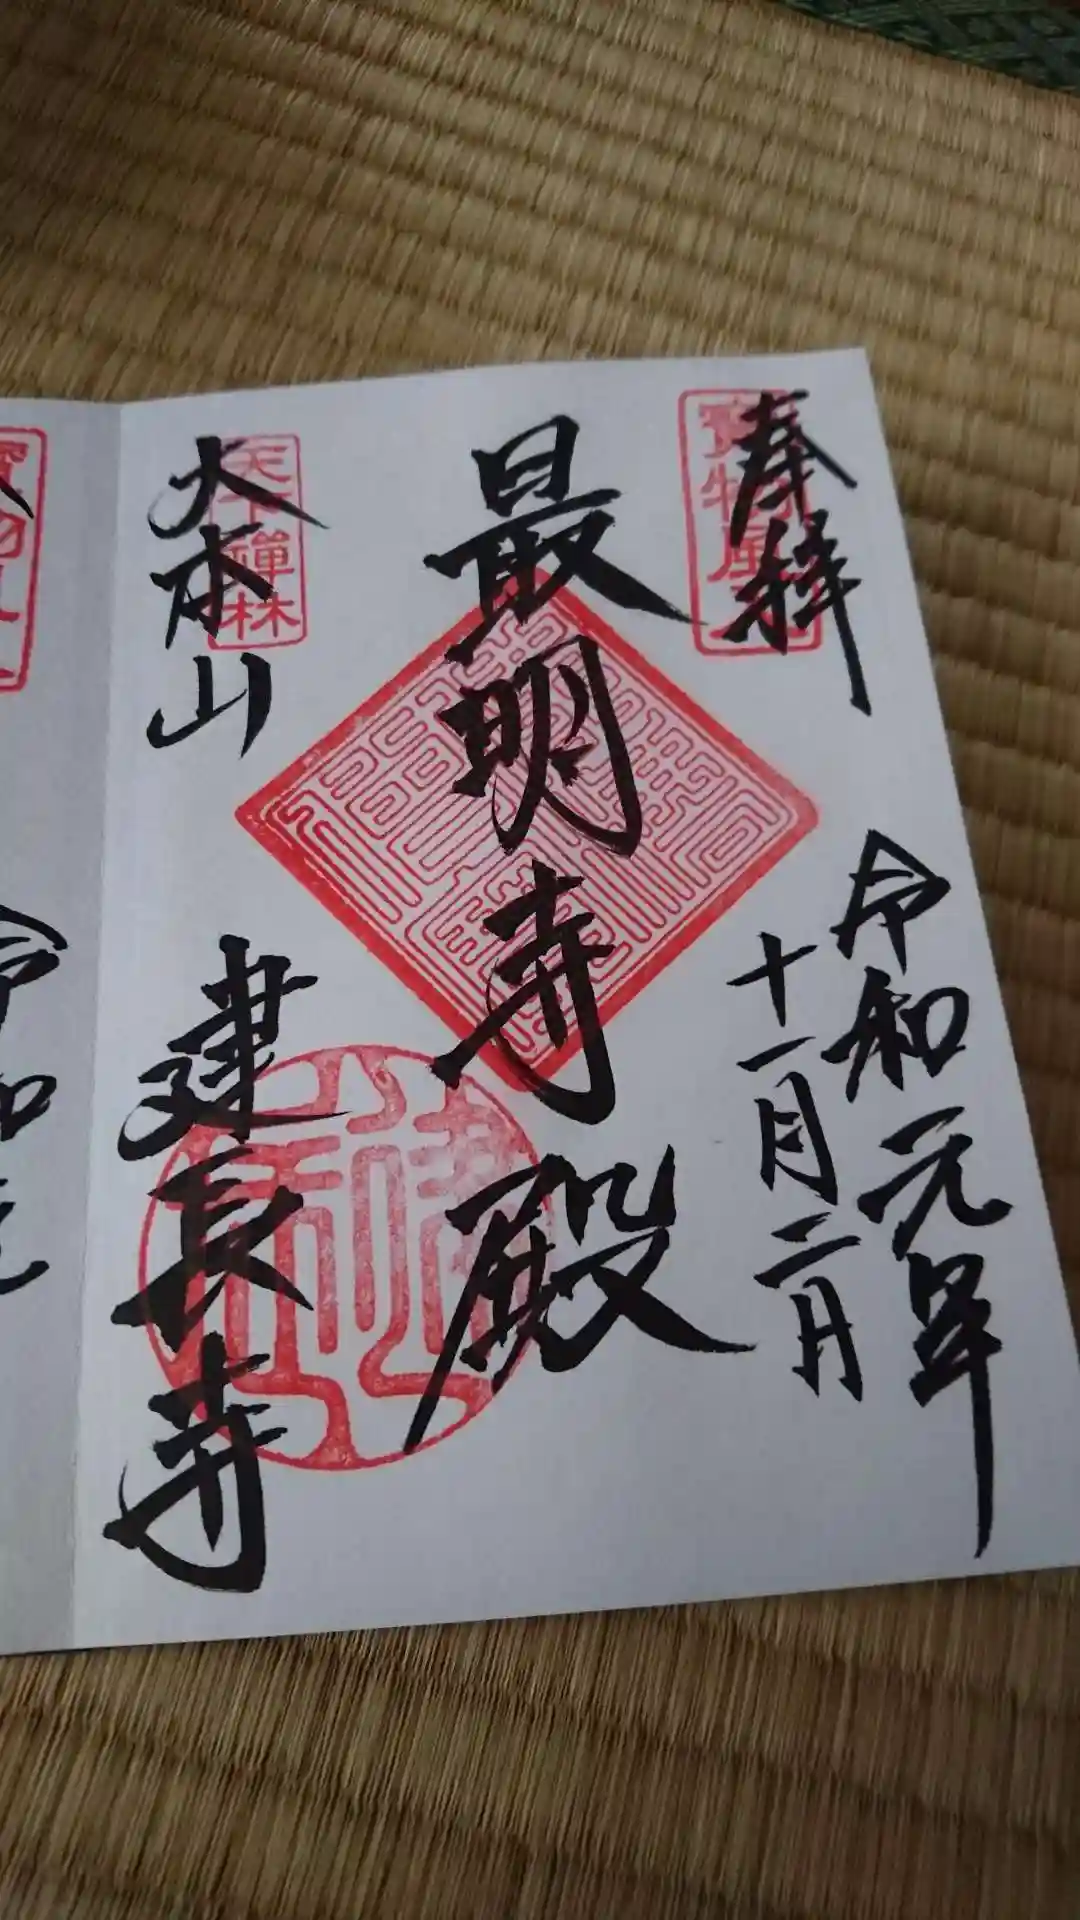 奉拝
寳物風入
令和元年
十一月二日
最明寺殿
天下禅林
大本山
建長寺
令和元